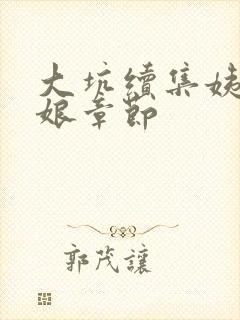 大坑續集姨
娘章節
郭茂讓